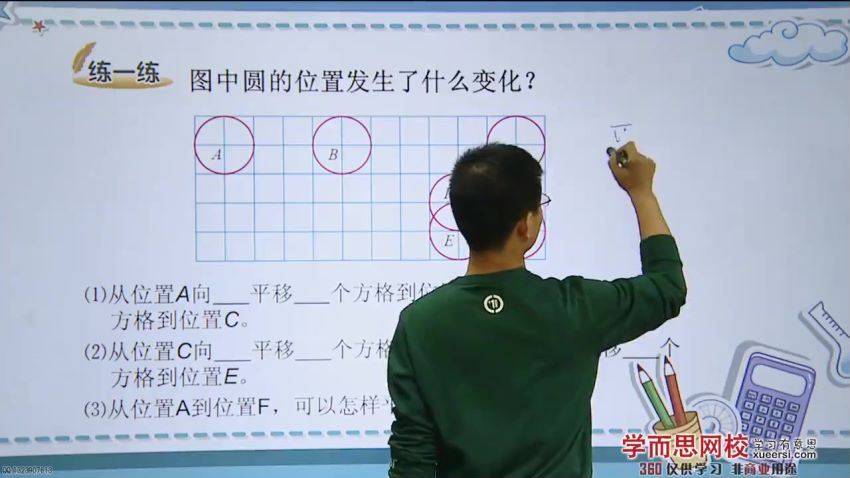 练一练
图中圆的位置发生了什么变化？
A
B
E
(1)从位置A向___平移___个方格到
方格到位置C。
(2)从位置C向___平移___个方格
移___个
方格到位置E。
(3)从位置A到位置F，可以怎样
学而思网校
学习有意思
xueersi.com
360 仅供学习 非商业用途
QQ:1323907613